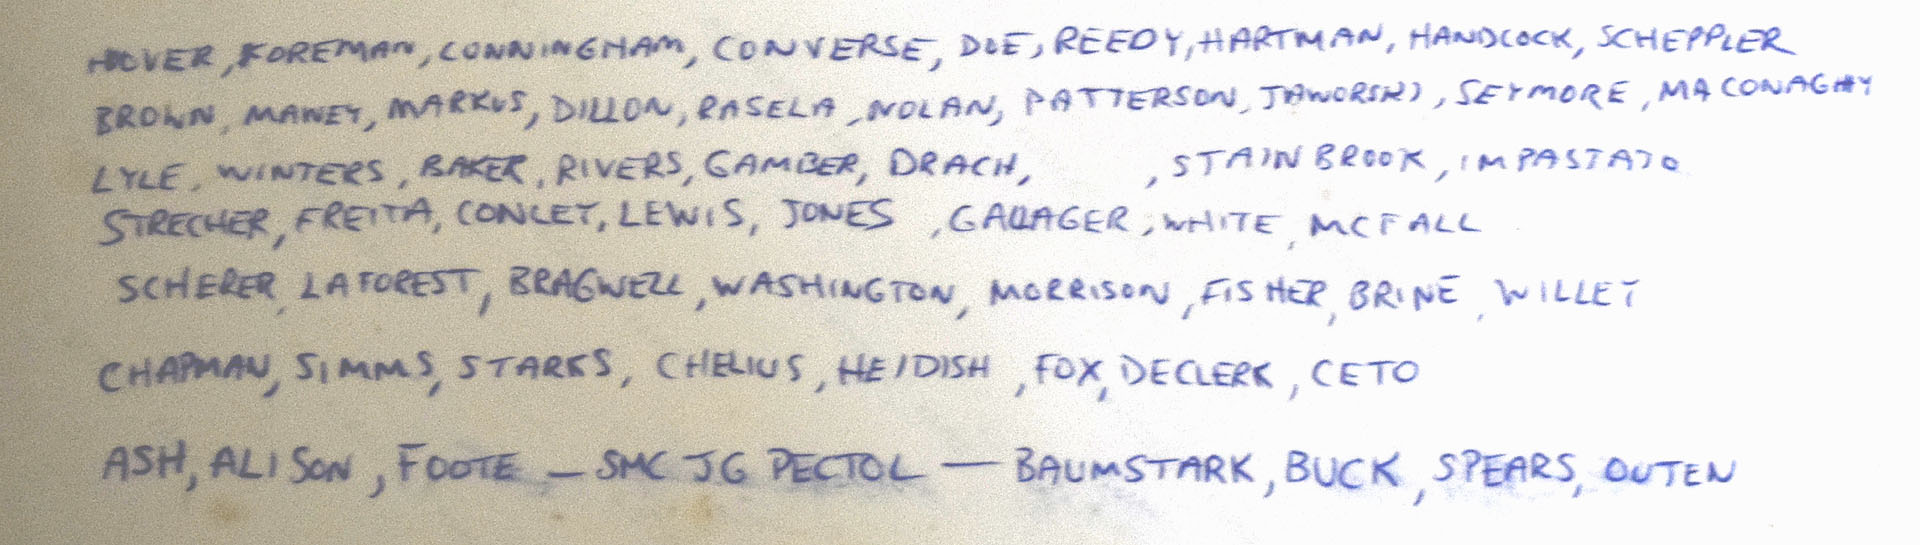 HOVER, FOREMAN, CONNINGHAM, CONVERSE, DOE, REEDY, HARTMAN, HANDCOCK, SCHEPPLER
BROWN, MAWEY, MARKUS, DILLON, RASELA, NOLAN, PATTERSON, JAWORSKI, SEYMORE, MACONAGHY
LYLE, WINTERS, BAKER, RIVERS, GAMBER, DRACH, , STAINBROOK, IMPASTATO
STRECHER, FREITA, CONLEY, LEWIS, JONES, GALLAGER, WHITE, MCFALL
SCHERER, LAFOREST, BRAGWELL, WASHINGTON, MORRISON, FISHER, BRINE, WILLET
CHAPMAN, SIMMS, STARKS, CHELIUS, HEIDISH, FOX, DECLERK, CETO
ASH, ALISON, FOOTE — SMC JG PECTOL — BAUMSTARK, BUCK, SPEARS, OUTEN